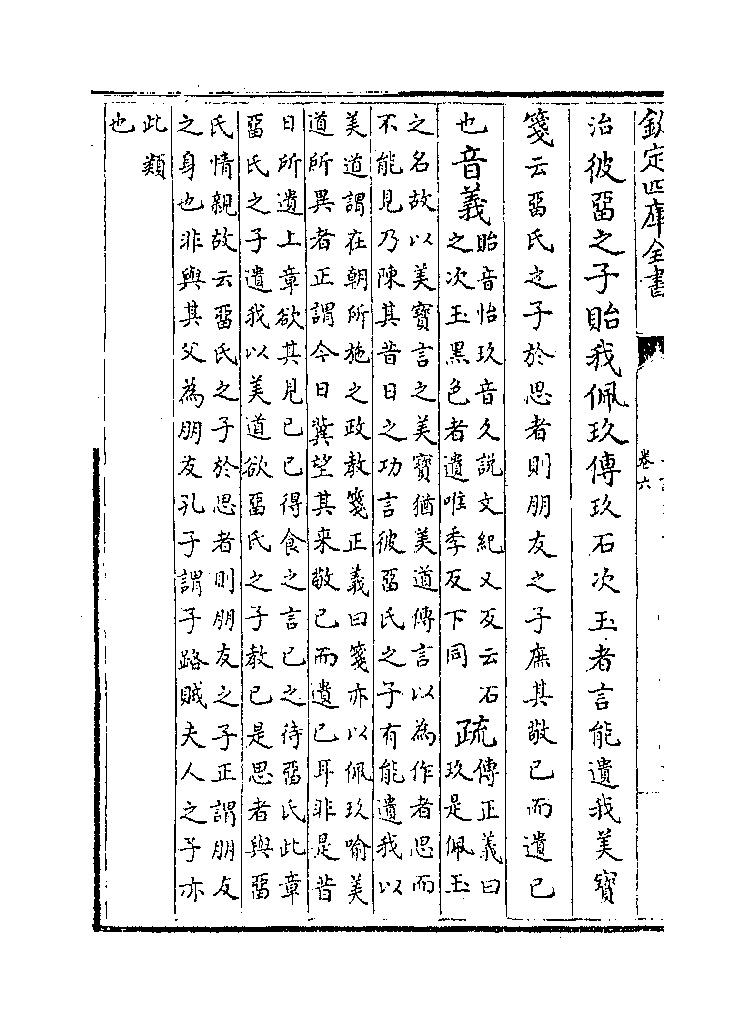 欽定四庫全書
卷六
治彼畱之子貽我佩玖傳玖石次玉者言能遺我美寶
箋云畱氏之子於思者則朋友之子庶其敬已而遺已
也音義貽音怡玖音久說文紀又反云石
之次玉黑色者遺唯季反下同疏傳正義曰
玖是佩玉
之名故以美寶言之美寶猶美道傳言以為作者思而
不能見乃陳其昔日之功言彼畱氏之子有能遺我以
美道謂在朝所施之政教箋正義曰箋亦以佩玖喻美
道所異者正謂今日冀望其来敬已而遺已耳非是昔
日所遺上章欲其見已已得食之言已之待畱氏此章
畱氏之子遺我以美道欲畱氏之子教已是思者與畱
氏情親故云畱氏之子於思者則朋友之子正謂朋友
之身也非與其父為朋友孔子謂子路賊夫人之子亦
此類
也